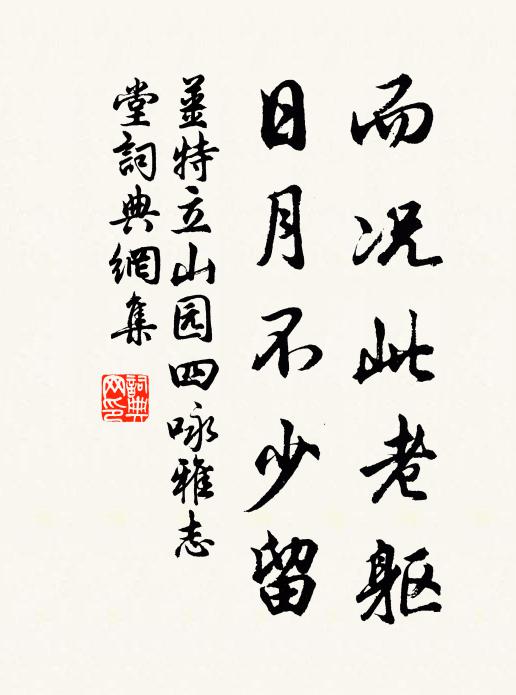 而况此老躯
日月不少留
姜特立山园四咏雅志
堂詞典網集
詞典网印